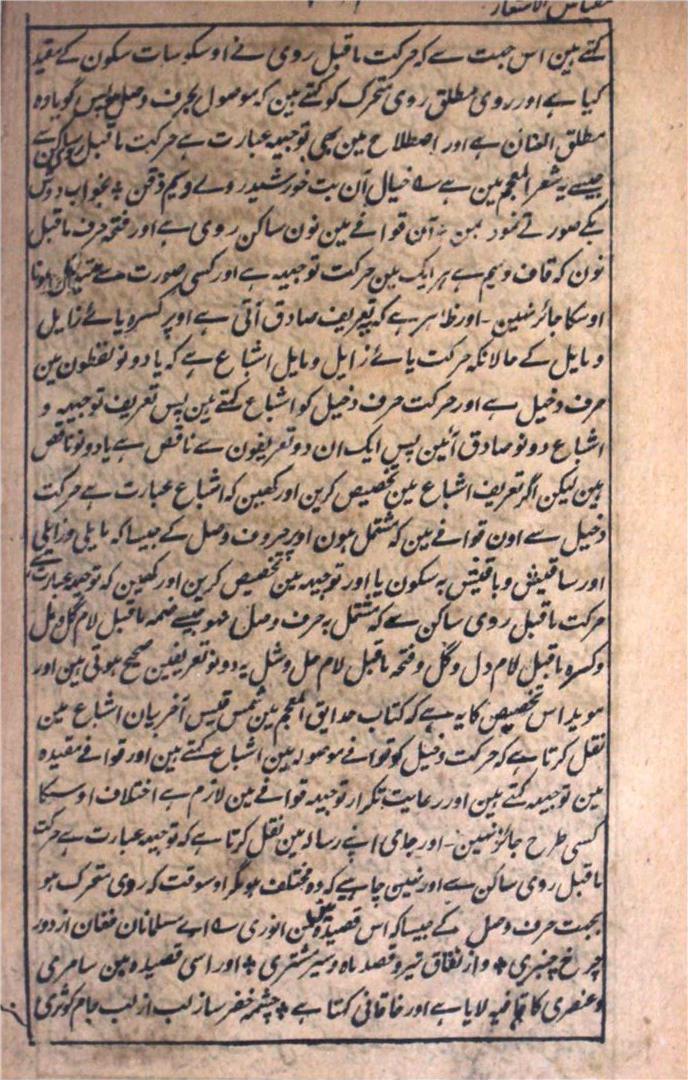 مقیاس الاشعار
کہتے ہین اس جہت سے کہ حرکت ماقبل روی نے اوسکو سات سکون کے مقید
کیا ہے اور روی مطلق روی متحرک کو کہتے ہین کہ موصول بحرف وصل ہو پس گویا وہ
مطلق العنان ہے اور اصطلاح مین بھی توجیہ عبارت ہے حرکت ماقبل روی ساکن سے
جیسے یہ شعر المعجم مین ہے ؎ خیال آن بت خورشید روے و سیم ذقن ٭ بخواب دوش
یکے صورتے نمود بمن ٭ ان قوافے مین نون ساکن روی ہے اور فتحہ حرف ماقبل
نون کہ قاف و میم ہے ہر ایک مین حرکت توجیہ ہے اور کسی صورت سے متبدل ہونا
اوسکا جائز نہین - اور ظاہر ہے کہ یہ تعریف صادق آتی ہے اوپر کسرہ یائے زایل
و مایل کے حالانکہ حرکت یائے زایل و مایل اشباع ہے کہ یا دونو لفظون مین
حرف دخیل ہے اور حرکت حرف دخیل کو اشباع کہتے ہین پس تعریف توجیہ و
اشباع دونو صادق آئین پس ایک ان دو تعریفون سے ناقص ہے یا دونو ناقص
ہین لیکن اگر تعریف اشباع مین تخصیص کرین اور کہین کہ اشباع عبارت ہے حرکت
دخیل سے اون قوافے مین کہ مشتمل ہون اوپر حروف وصل کے جیسا کہ مایلی و زایلی
اور ساقیش و باقیش بہ سکون یا اور توجیہ مین تخصیص کرین اور کہین کہ توجیہ عبارت ہے
حرکت ماقبل روی ساکن سے کہ مشتمل بہ حرف وصل نہو جیسے ضمہ ماقبل لام گل و مل
و کسرہ ماقبل لام دل و گل و فتحہ ماقبل لام مل و شل یہ دونو تعریفین صحیح ہوتی ہین اور
موید اس تخصیص کا یہ ہے کہ کتاب حدایق المعجم مین شمس قیس آخر بیان اشباع مین
نقل کرتا ہے کہ حرکت دخیل کو قوافے موصولہ مین اشباع کہتے ہین اور قوافے مقیدہ
مین توجیہ کہتے ہین اور رعایت تکرار توجیہ قوافے مین لازم ہے اختلاف اوسکا
کسی طرح جائز نہین - اور جامی اپنے رسالہ مین نقل کرتا ہے کہ توجیہ عبارت ہے حرکت
ماقبل روی ساکن سے اور نہین چاہیے کہ وہ مختلف ہو مگر اوسوقت کہ روی متحرک ہو
بجہت حرف وصل کے جیسا کہ اس قصیدہ مین انوری ؎ اے مسلمانان فغان از دور
چرخ چنبری ٭ و از نفاق تیر و قصد ماہ و سیر مشتری ٭ اور اسی قصیدہ مین سامری
و عنصری کا قافیہ لایا ہے اور خاقانی کہتا ہے ٭ چشمہ خضر ساز لب از لب جام کوثری